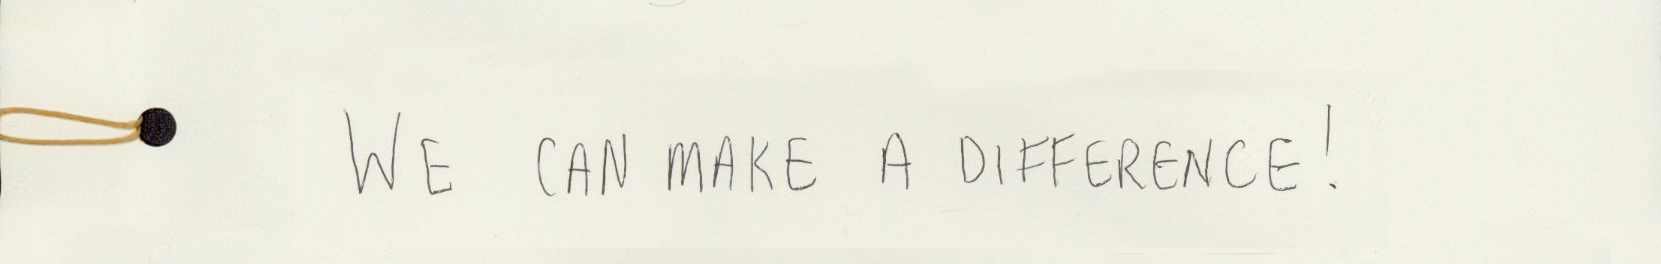 WE CAN MAKE A DIFFERENCE!